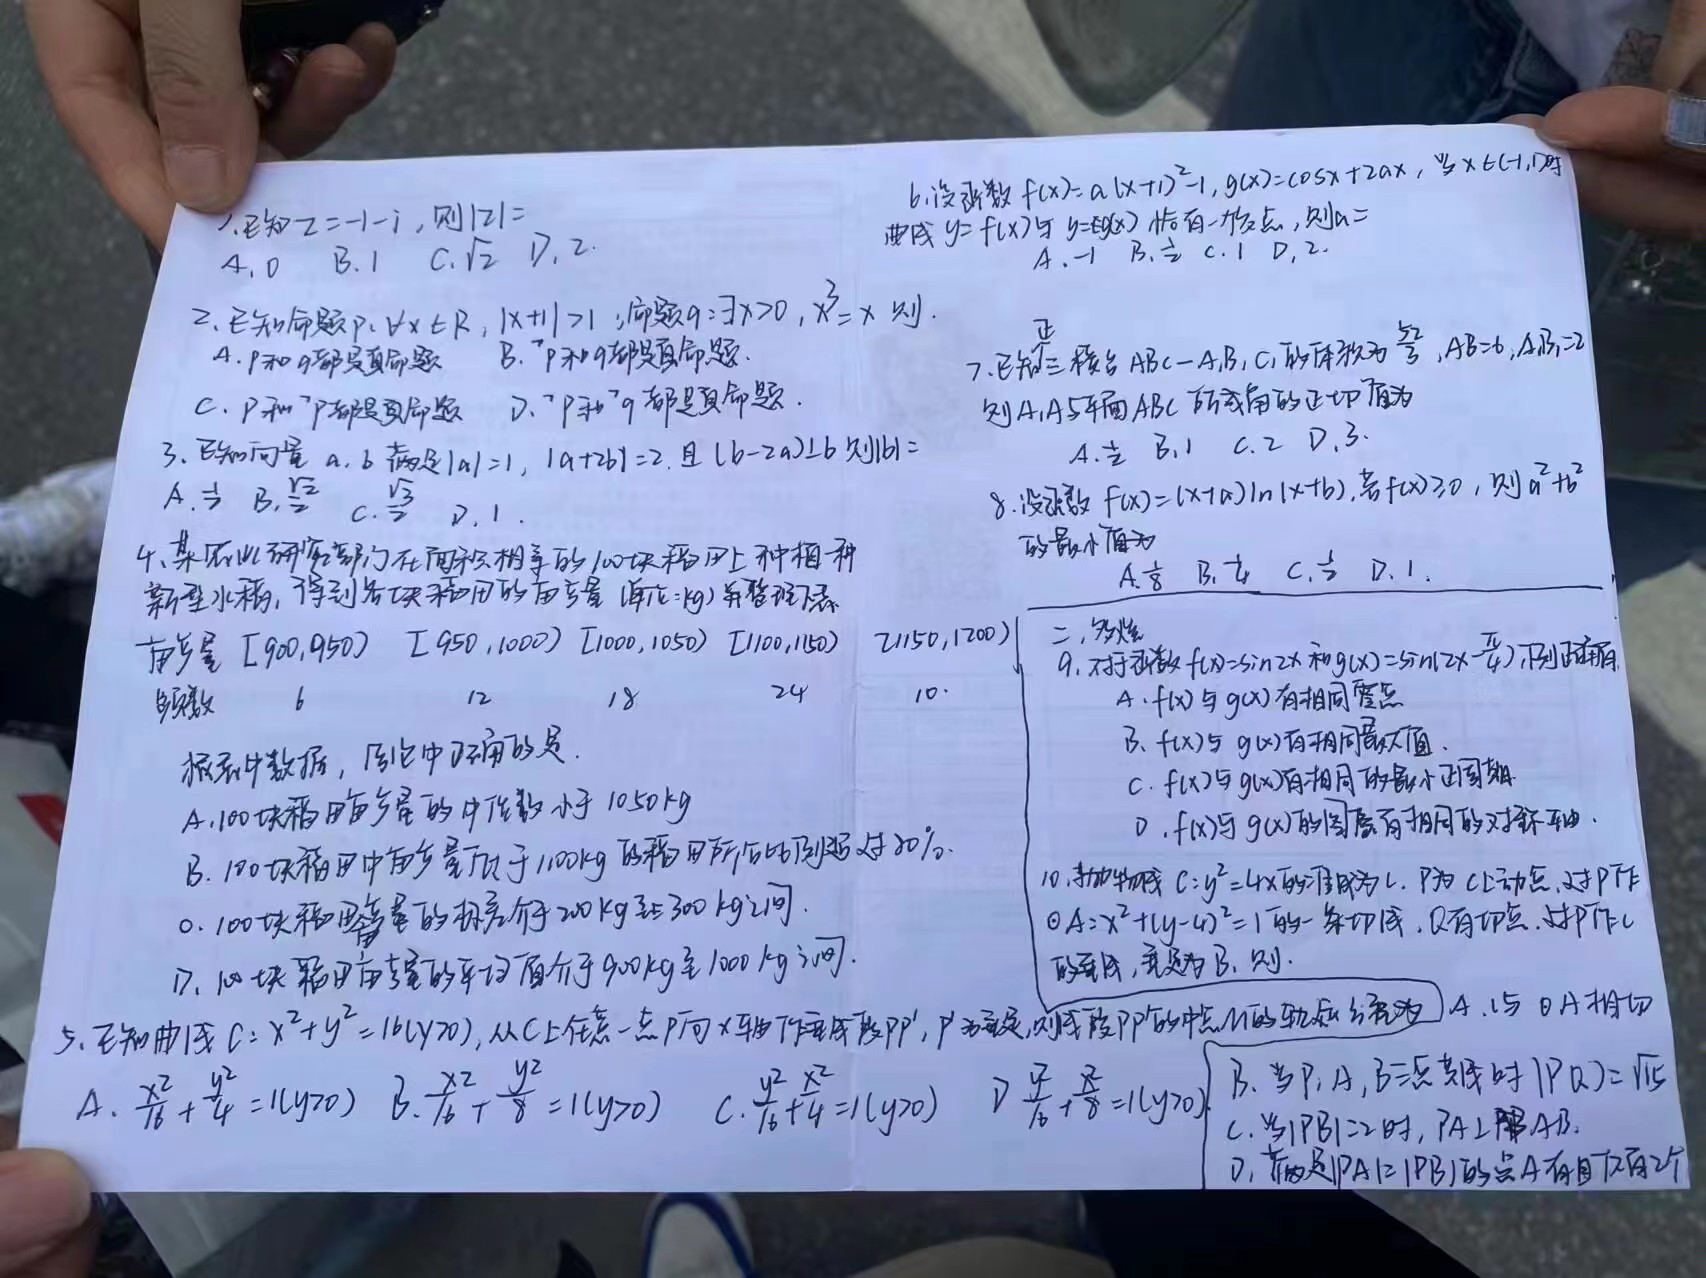 1.已知z=-1-i,则|z|=
A.0 B.1 C.√2 D.2.
2.已知命题p:∀x∈R,|x+1|>1;命题q:∃x>0,x³=x 则.
A.p和q都是真命题 B.¬p和q都是真命题.
C.p和¬p都是真命题 D.¬p和¬q都是真命题.
3.已知向量 a.b 满足|a|=1,|a+2b|=2.且(b-2a)⊥b 则|b|=
A.1/2 B.√2/2 C.√3/2 D.1.
4.某农业研究部门在面积相等的100块稻田上种植一种
新型水稻,得到各块稻田的亩产量(单位:kg)并整理下表
亩产量 [900,950) [950,1000) [1000,1050) [1100,1150) [1150,1200)
频数 6 12 18 24 10.
据表中数据,结论中正确的是.
A.100块稻田亩产量的中位数小于1050kg
B.100块稻田中亩产量低于1100kg的稻田所占比例超过80%.
C.100块稻田亩产量的极差介于200kg至300kg之间.
D.100块稻田亩产量的平均值介于900kg至1000kg之间.
5.已知曲线C:x²+y²=16(y>0),从C上任意一点P向x轴作垂线段PP',P'为垂足,则线段PP'的中点M的轨迹方程为
A.x²/16+y²/4=1(y>0) B.x²/16+y²/8=1(y>0) C.y²/16+x²/4=1(y>0) D y²/16+x²/8=1(y>0).
6.设函数f(x)=a(x+1)²-1,g(x)=cosx+2ax,当x∈(-1,1)时
曲线y=f(x)与y=g(x)恰有一个交点,则a=
A.-1 B.1/2 C.1 D.2.
7.已知正三棱台ABC-A₁B₁C₁的体积为52/3,AB=6,A₁B₁=2
则A₁A与平面ABC所成角的正切值为
A.1/2 B.1 C.2 D.3.
8.设函数f(x)=(x+a)ln(x+b),若f(x)≥0,则a²+b²
的最小值为
A.1/8 B.1/4 C.1/2 D.1.
二,多选
9.对于函数f(x)=sin2x和g(x)=sin(2x-π/4),下列正确有
A.f(x)与g(x)有相同零点
B.f(x)与g(x)有相同最大值.
C.f(x)与g(x)有相同的最小正周期
D.f(x)与g(x)的图像有相同的对称轴.
10.抛物线C:y²=4x的准线为L.P为C上动点,对P作
⊙A:x²+(y-4)²=1的一条切线.Q有切点.对P作L
的垂线,垂足为B.则.
A.L与⊙A相切
B.当P,A,B三点共线时|PQ|=√15
C.当|PB|=2时,PA⊥AB.
D.满足|PA|=|PB|的点A有且仅有2个